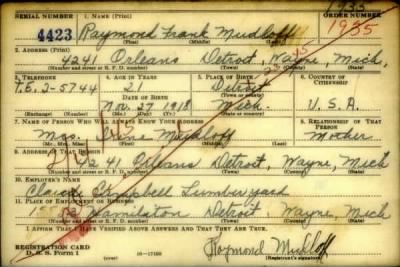 1935
SERIAL NUMBER 1. NAME (Print) ORDER NUMBER
4423 Raymond Frank Muchloff 1935
(First) (Middle) (Last)
2. ADDRESS (Print)
4241 Orleans Detroit, Wayne, Mich.
(Number and street or R. F. D. number) (Town) (County) (State)
3. TELEPHONE 4. AGE IN YEARS 5. PLACE OF BIRTH 6. COUNTRY OF CITIZENSHIP
T.E. 2-5744 21 Detroit
DATE OF BIRTH
Nov. 27 1918 Mich. U.S.A.
7. NAME OF PERSON WHO WILL ALWAYS KNOW YOUR ADDRESS 8. RELATIONSHIP OF THAT PERSON
Mrs. Muchloff Mother
9. ADDRESS OF THAT PERSON
4241 Orleans Detroit, Wayne, Mich
(Number and street or R. F. D. number) (Town) (County) (State)
10. EMPLOYER'S NAME
Campbell Lumberyard
11. PLACE OF EMPLOYMENT OR BUSINESS
Hamilton Detroit Wayne, Mich
(Number and street or R. F. D. number) (Town) (County) (State)
I AFFIRM THAT I HAVE VERIFIED ABOVE ANSWERS AND THAT THEY ARE TRUE.
REGISTRATION CARD
D. S. S. Form 1 16-17105 Raymond Muchloff
(Registrant's signature)